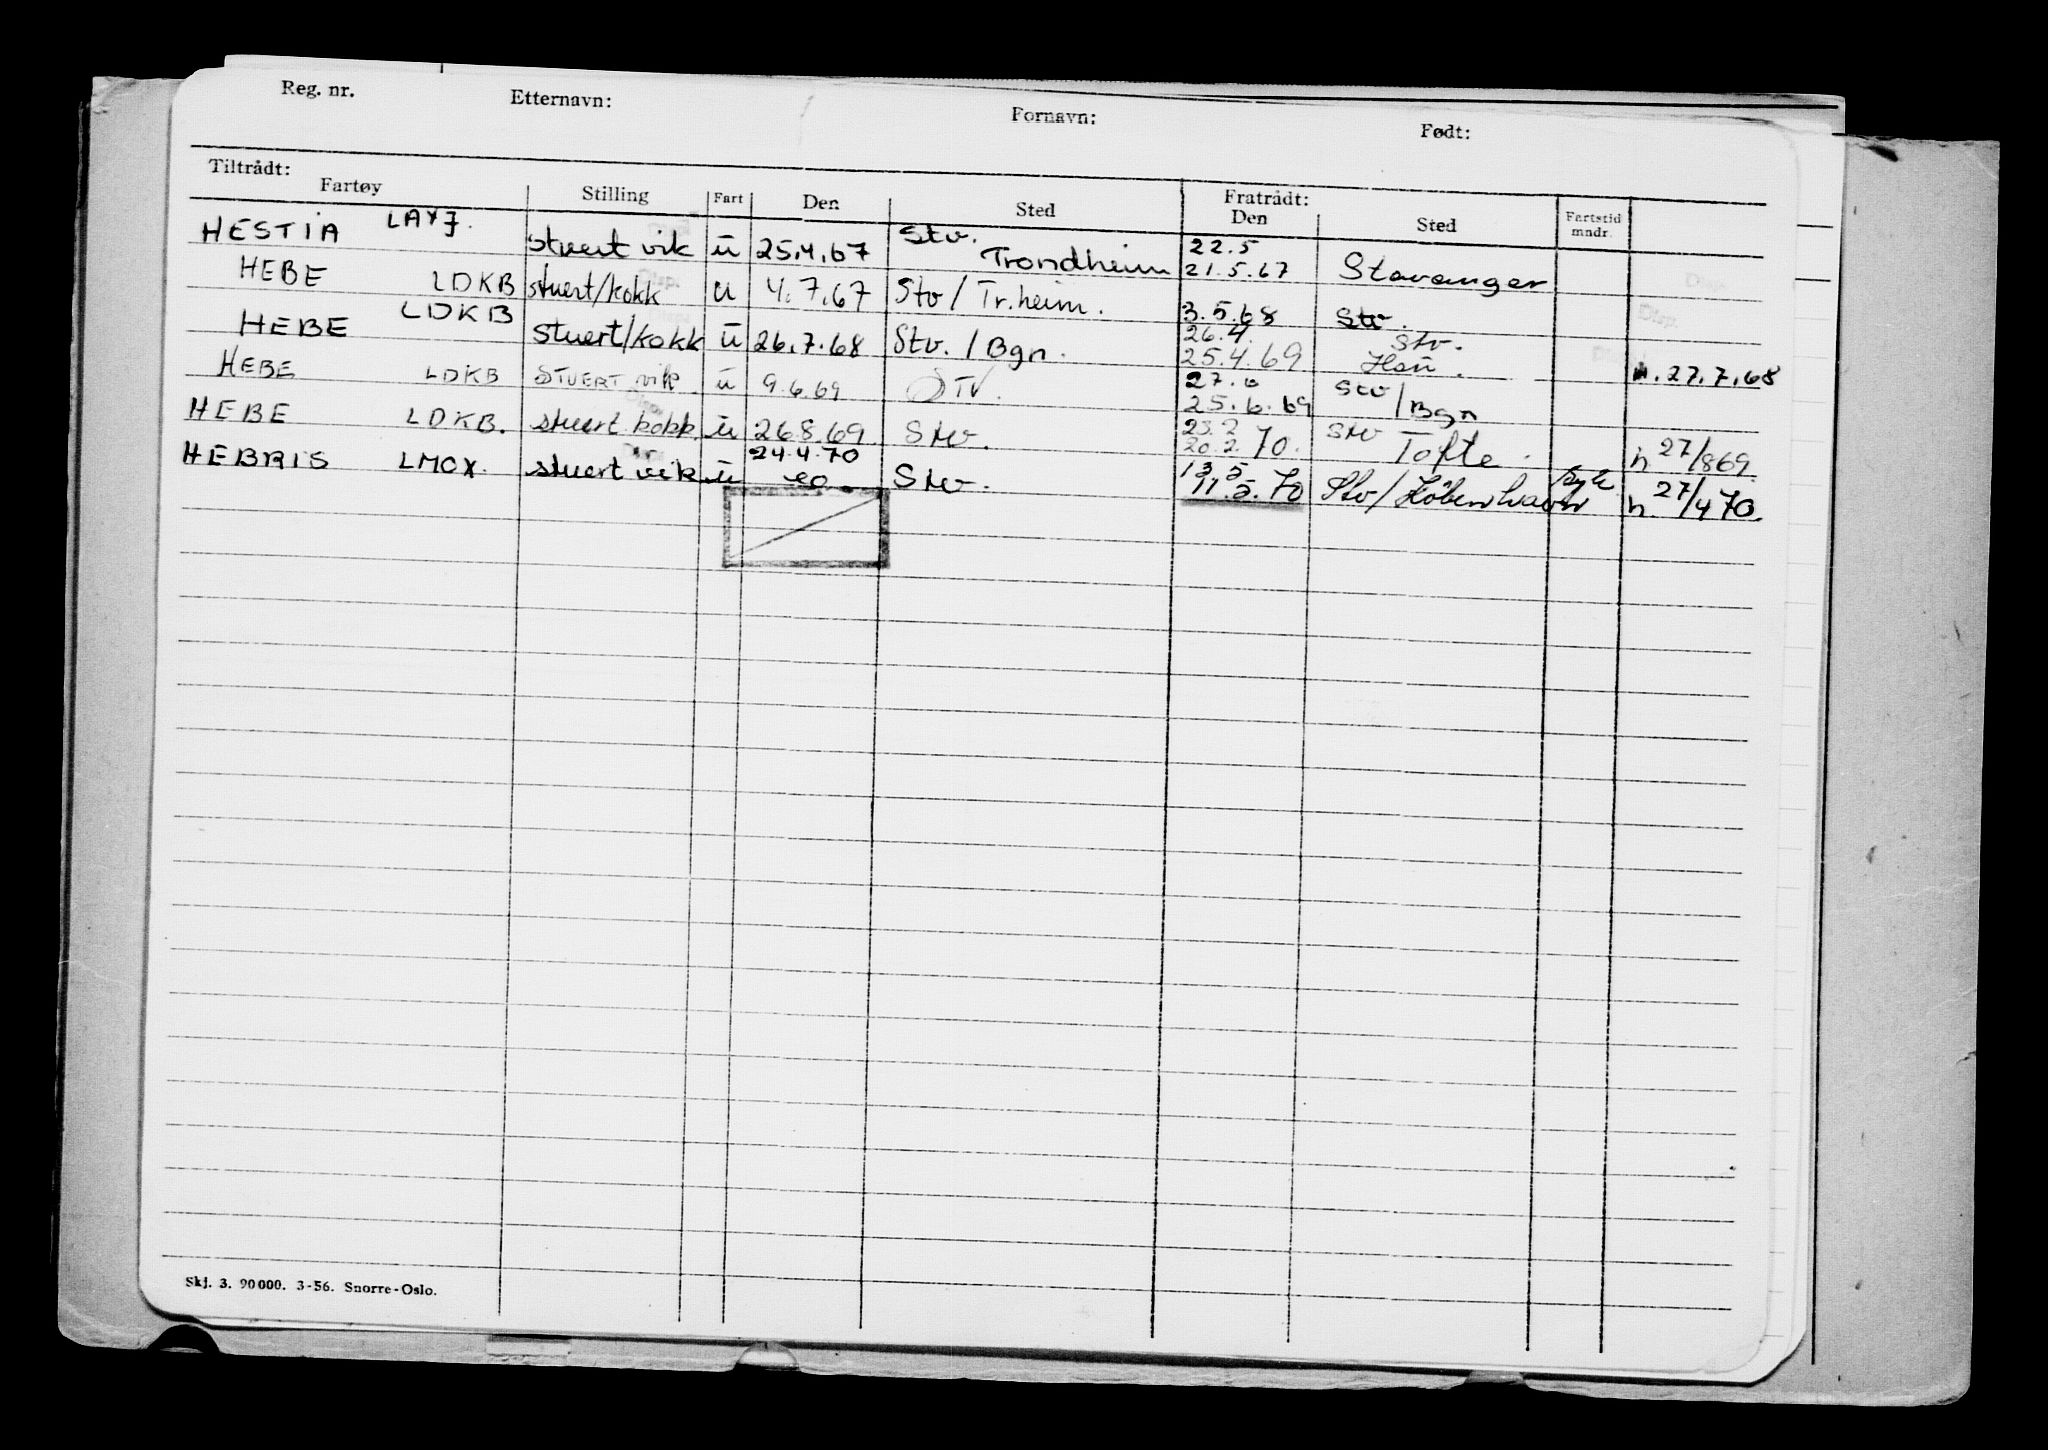 Reg. nr. Etternavn: Fornavn: Født:
Tiltrådt: Fratrådt:
Fartøy Stilling Fart Den Sted Den Sted Fartstid mndr.
HESTIA LAYJ. stuert vik ū 25.4.67 Stv. Trondheim 22.5 21.5.67 Stavanger
HEBE LDKB stuert/kokk u 4.7.67 Stv / Tr.heim. 3.5.68 Stv.
HEBE LDKB stuert/kokk ū 26.7.68 Stv. / Bgn. 26.4. 25.4.69 Stv. n. 27.7.68
HEBE LDKB STUERT vik. ū 9.6.69 STV. 27.6 25.6.69 Stv / Bgn
HEBE LDKB. stuert kokk. ū 26.8.69 Stv. 23.2 20.2.70. Stv Tofte. n 27/869.
HEBRIS LMOX. stuert vik ū 24.4.70 Stv. 13.5 11.5.70 Stv/København syk n 27/470.
Skj. 3. 90 000. 3-56. Snorre-Oslo.